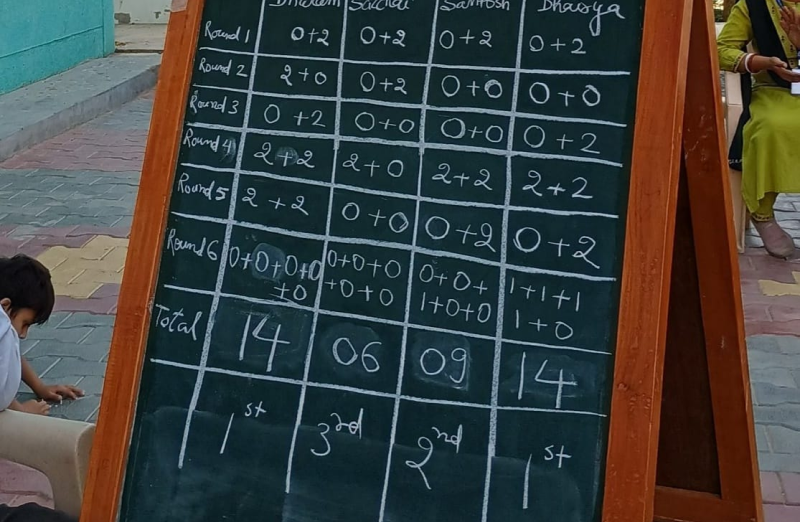 Dharam Sacchai Santosh Dhairya
Round 1 0+2 0+2 0+2 0+2
Round 2 2+0 0+2 0+0 0+0
Round 3 0+2 0+0 0+0 0+2
Round 4 2+2 2+0 2+2 2+2
Round 5 2+2 0+0 0+2 0+2
Round 6 0+0+0+0 0+0+0 0+0+ 1+1+1
+0 +0+0 1+0+0 1+0
Total 14 06 09 14
1st 3rd 2nd 1st